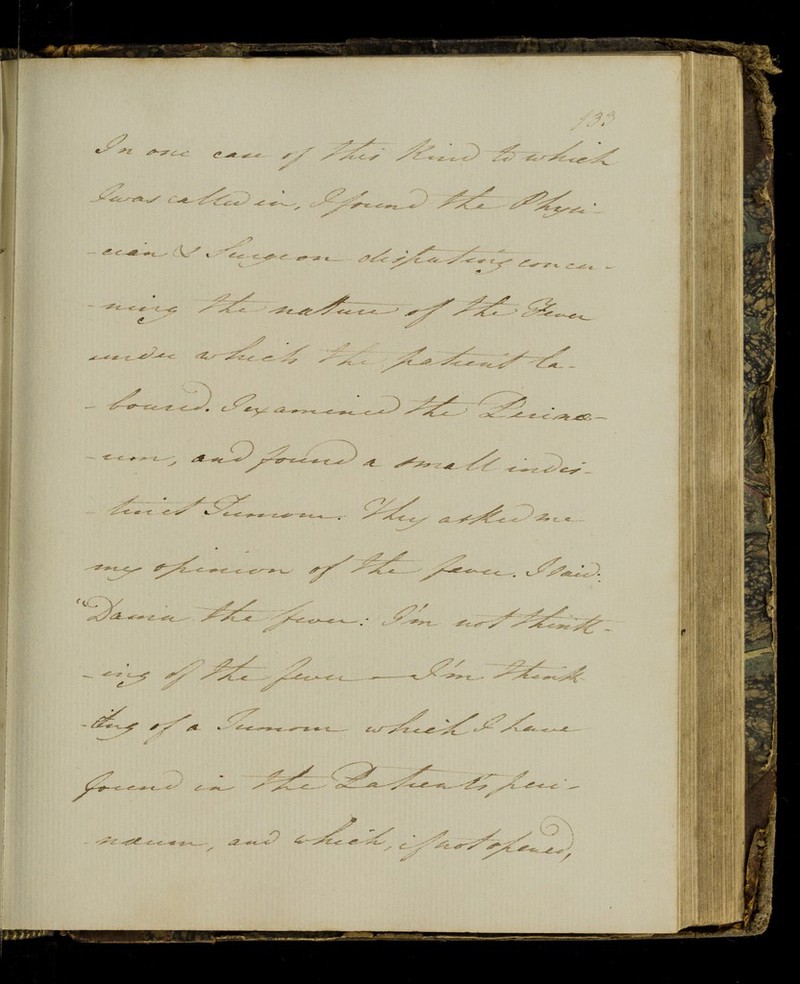 133
In one case of this Kind to which
I was called in, I found the Physi-
-cian & Surgeon disputing concer-
-ning the nature of the Fever
under which the patient la-
-boured. I examined the Perinæ-
-um, and found a small indis-
-tinct Tumour. They asked me
my opinion of the fever. I said:
"Damn the fever: I'm not think-
-ing of the fever — I'm think
-ing of a Tumour which I have
found in the Patient's peri-
-næum, and which, if not opened,